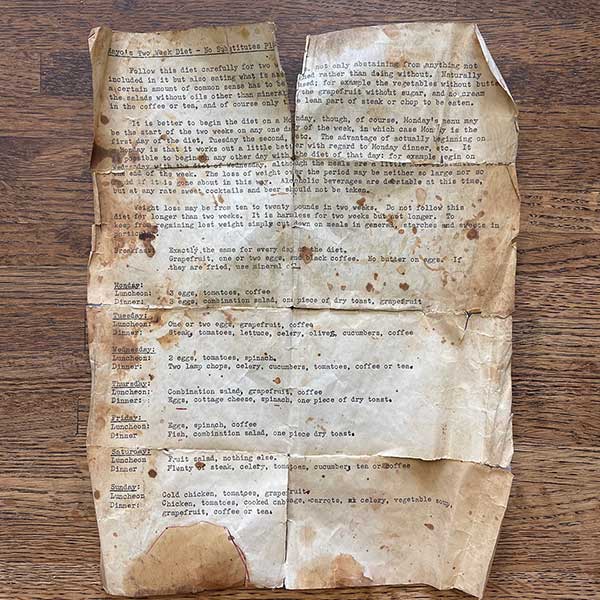 Mayo's Two Week Diet - No Substitutes
Follow this diet carefully for two not only abstaining from anything not
included in it but also eating what is rather than doing without. Naturally
a certain amount of common sense has to be used; for example the vegetables without butter
the salads without oiles other than mineral the grapefruit without sugar, and no cream
in the coffee or tea, and of course only lean part of steak or chop to be eaten.
It is better to begin the diet on a Monday, though, of course, Monday's menu may
be the start of the two weeks on any one day of the week, in which case Monday is the
first day of the diet, Tuesday the second, etc. The advantage of actually beginning on
Monday is that it works out a little better with regard to Monday dinner, etc. It
possible to begin on any other day with the diet of that day; for example begin on
with the diet of Wednesday, the meals are a little
end of the week. The loss of weight over the period may be neither so large nor
if it is done about in this way. Alcoholic beverages are debatable at this time,
at any rate sweet cocktails and beer should not be taken.
Weight loss may be from ten to twenty pounds in two weeks. Do not follow this
diet for longer than two weeks. It is harmless for two weeks but not longer. To
keep from regaining lost weight simply cut down on meals in general, starches and sweets in
particular.
Breakfast: Exactly the same for every day of the diet.
Grapefruit, one or two eggs, and black coffee. No butter on eggs. If
they are fried, use mineral oil.
Monday:
Luncheon: 2 eggs, tomatoes, coffee
Dinner: 2 eggs, combination salad, one piece of dry toast, grapefruit
Tuesday:
Luncheon: One or two eggs, grapefruit, coffee
Dinner: Steak, tomatoes, lettuce, celery, olives, cucumbers, coffee
Wednesday:
Luncheon: 2 eggs, tomatoes, spinach.
Dinner: Two lamp chops, celery, cucumbers, tomatoes, coffee or tea.
Thursday:
Luncheon: Combination salad, grapefruit, coffee
Dinner: Eggs, cottage cheese, spinach, one piece of dry toast.
Friday:
Luncheon: Eggs, spinach, coffee
Dinner Fish, combination salad, one piece dry toast.
Saturday:
Luncheon Fruit salad, nothing else.
Dinner Plenty of steak, celery, tomatoes, cucumber, tea or coffee
Sunday:
Luncheon Cold chicken, tomatoes, grapefruit.
Dinner: Chicken, tomatoes, cooked cabbage, carrots, celery, vegetable soup,
grapefruit, coffee or tea.